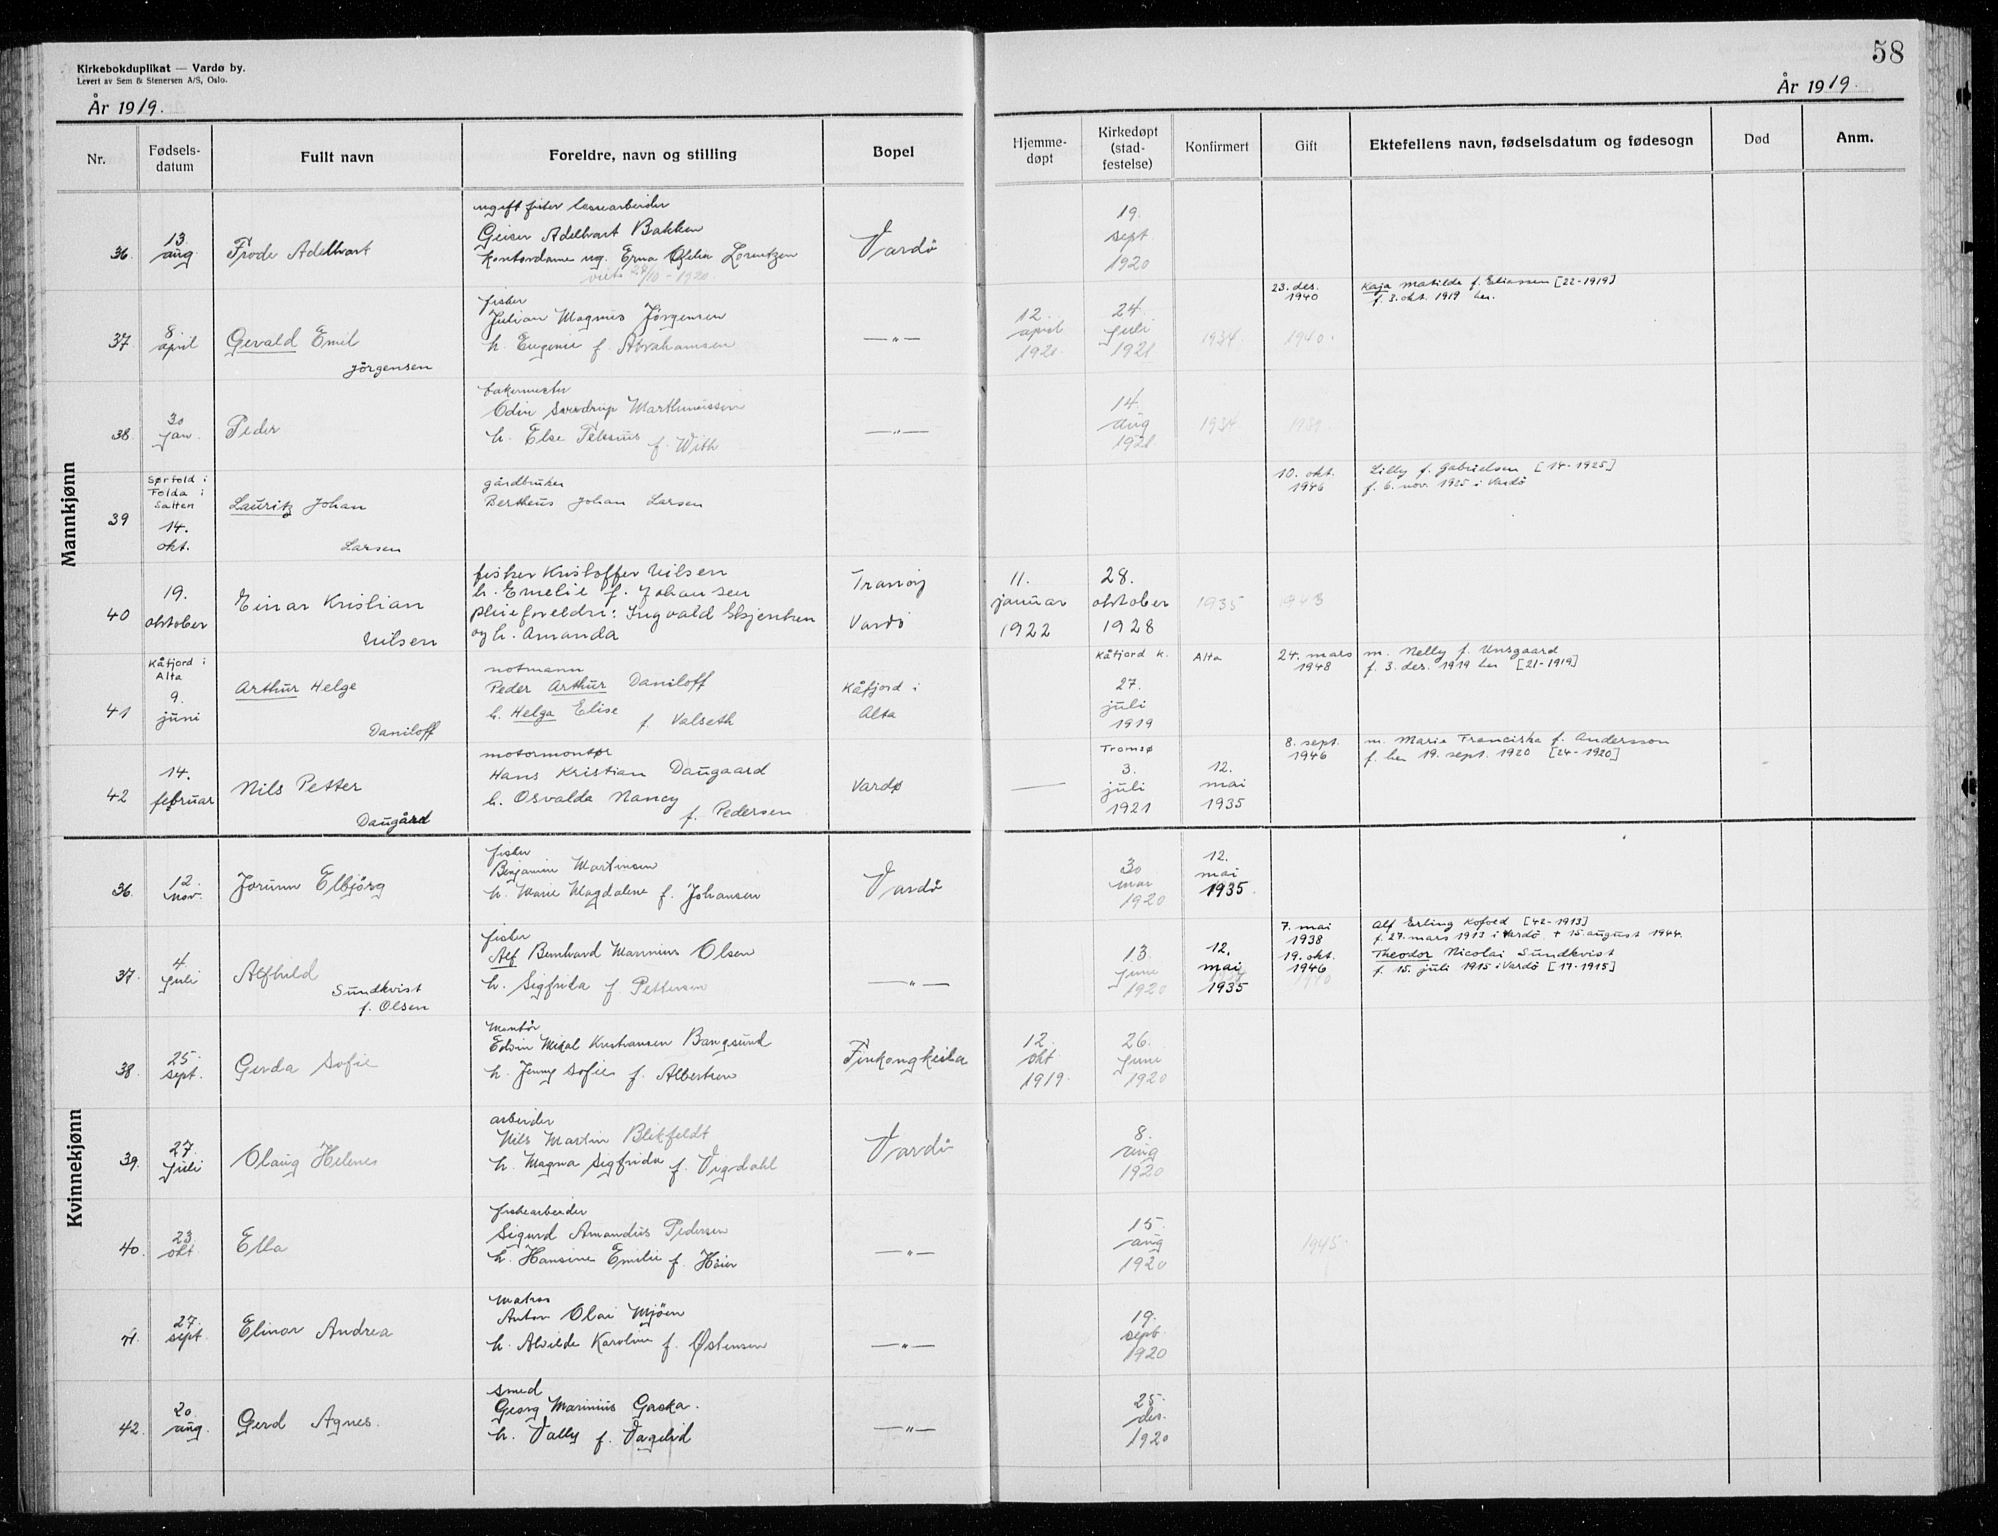 Kirkebokduplikat — Vardø by.
Levert av Sem & Stenersen A/S, Oslo.
År 1919.
58
År 1919.
Nr.
Fødsels-
datum
Fullt navn
Foreldre, navn og stilling
Bopel
Hjemme-
døpt
Kirkedøpt
(stad-
festelse)
Konfirmert
Gift
Ektefellens navn, fødselsdatum og fødesogn
Død
Anm.
Mannkjønn
36
13.
aug.
Frode Adelhart
ugift
Geiser Adelhart Bakken
kontordame ug. Erna Ofelia Lorentzen
28/10 - 1920.
Vardø
19.
sept.
1920
37
8.
april
Gevald Emil
Jörgensen
fisker
Julian Magnus Jørgensen
h. Eugenie f. Abrahamsen
—"—
12.
april
1920
24.
juli
1921
1934
1940.
23. des.
1940
Kaja Matilde f. Eliassen [22-1919]
f. 3. okt. 1919 her.
38
30
jan.
Peder
bakermester
Odin Marthinussen
h. Else f. With
—"—
14.
aug
1921
1934
39
Sørfold i
Folda i
Salten
14.
okt.
Lauritz Johan
Larsen
gårdbruker
Bertheus Johan Larsen
10. okt.
1946
Lilly f. Gabrielsen [14-1925]
f. 6. nov. 1925 i Vardö
40
19.
oktober
Einar Kristian
Nilsen
fisker Kristoffer Nilsen
h. Emelie f. Johansen
Pleieforeldre: Ingvald
og h. Amanda
Tranöy
Vardö
11.
januar
1922
28.
oktober
1928
1935
1943
41
Kåfjord i
Alta
9.
juni
Arthur Helge
Daniloff
notmann
Peder Arthur Daniloff
h. Helga Elise
f. Valseth
Kåfjord i
Alta
Kåfjord k.
27.
juli
1919
Alta
24. mars
1948
m. Nelly f. Unsgaard
f. 3. des. 1919 her [21-1919]
42
14.
februar
Nils Petter
Daugård
motormontør
Hans Kristian Daugaard
h. Osvalda Nancy
f. Pedersen
Vardø
—
Tromsø
3.
juli
1921
12.
mai
1935
8. sept.
1946
m. Marie Franciska f. Andersson
f. her 19. sept. 1920 [24-1920]
Kvinnekjønn
36.
12.
nov.
Jorunn Elbjörg
fisker
Benjamin Martinsen
h. Marie Magdalene f. Johansen
Vardö
30
mar
1920
12.
mai
1935
37.
4.
juli
Alfhild
Sundkvist
f. Olsen
fisker
Alf Bernhard Marinius Olsen
h. Sigfrida f. Pettersen
—"—
13.
june
1920
12.
mai
1935
7. mai
1938
19. okt.
1946
1940
Alf Erling Kofoed [42-1913]
f. 27. mars 1913 i Vardö + 15. august 1944.
Theodor Nicolai Sundkvist
f. 15. juli 1915 i Vardö [17-1915]
38.
25.
sept.
Gerda Sofie
Montör
Edvin Mikal Kristiansen Bangsund
h. Jenny Sofie f. Albertsen
Finkongkeila
12.
okt
1919.
26.
june
1920
39.
27.
juli
Olaug Helene
arbeider
Nils Martin Blikfeldt
h. Magna Sigfrida f. Vigdahl
Vardö
8.
aug
1920
40.
23.
okt
Ella
fiskearbeider
Sigurd Amandus Pedersen
h. Hansine Emilie f. Höier
—"—
15.
aug
1920
1945.
41.
27.
sept.
Elinor Andrea
matros
Anton Olai Mjöen
h. Alvilde Karoline f. Østensen
—"—
19.
sept.
1920
42.
20.
aug.
Gerd Agnes.
smed
Georg Marinius Gaska.
h. Vally f. Vagelid
—"—
25.
des.
1920